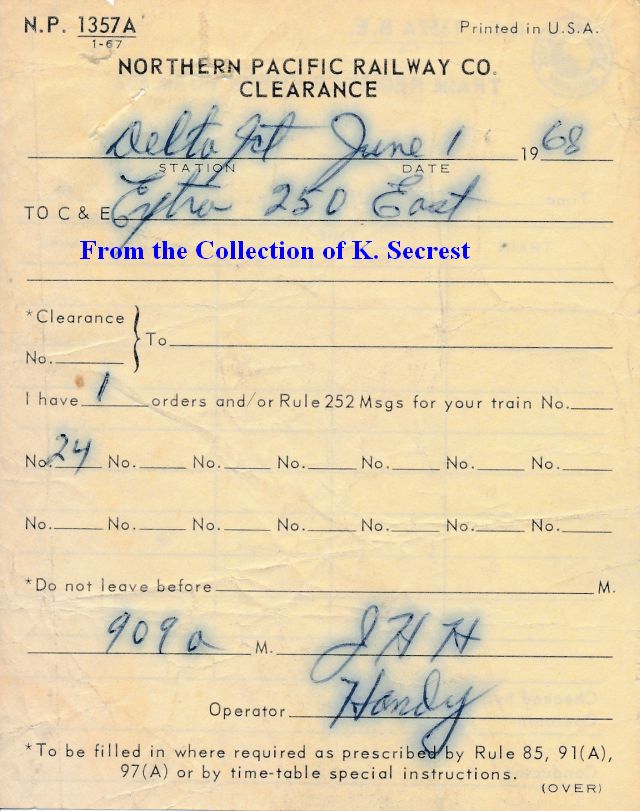 N.P. 1357A Printed in U.S.A.
1-67
NORTHERN PACIFIC RAILWAY CO.
CLEARANCE
Delta Jct June 1 1968
STATION DATE
TO C & E Extra 250 East
From the Collection of K. Secrest
*Clearance
No. To
I have 1 orders and/or Rule 252 Msgs for your train No.
No. 24 No. No. No. No. No. No.
No. No. No. No. No. No. No.
*Do not leave before M.
909 a M. J H H
Operator Handy
*To be filled in where required as prescribed by Rule 85, 91(A),
97(A) or by time-table special instructions.
(OVER)